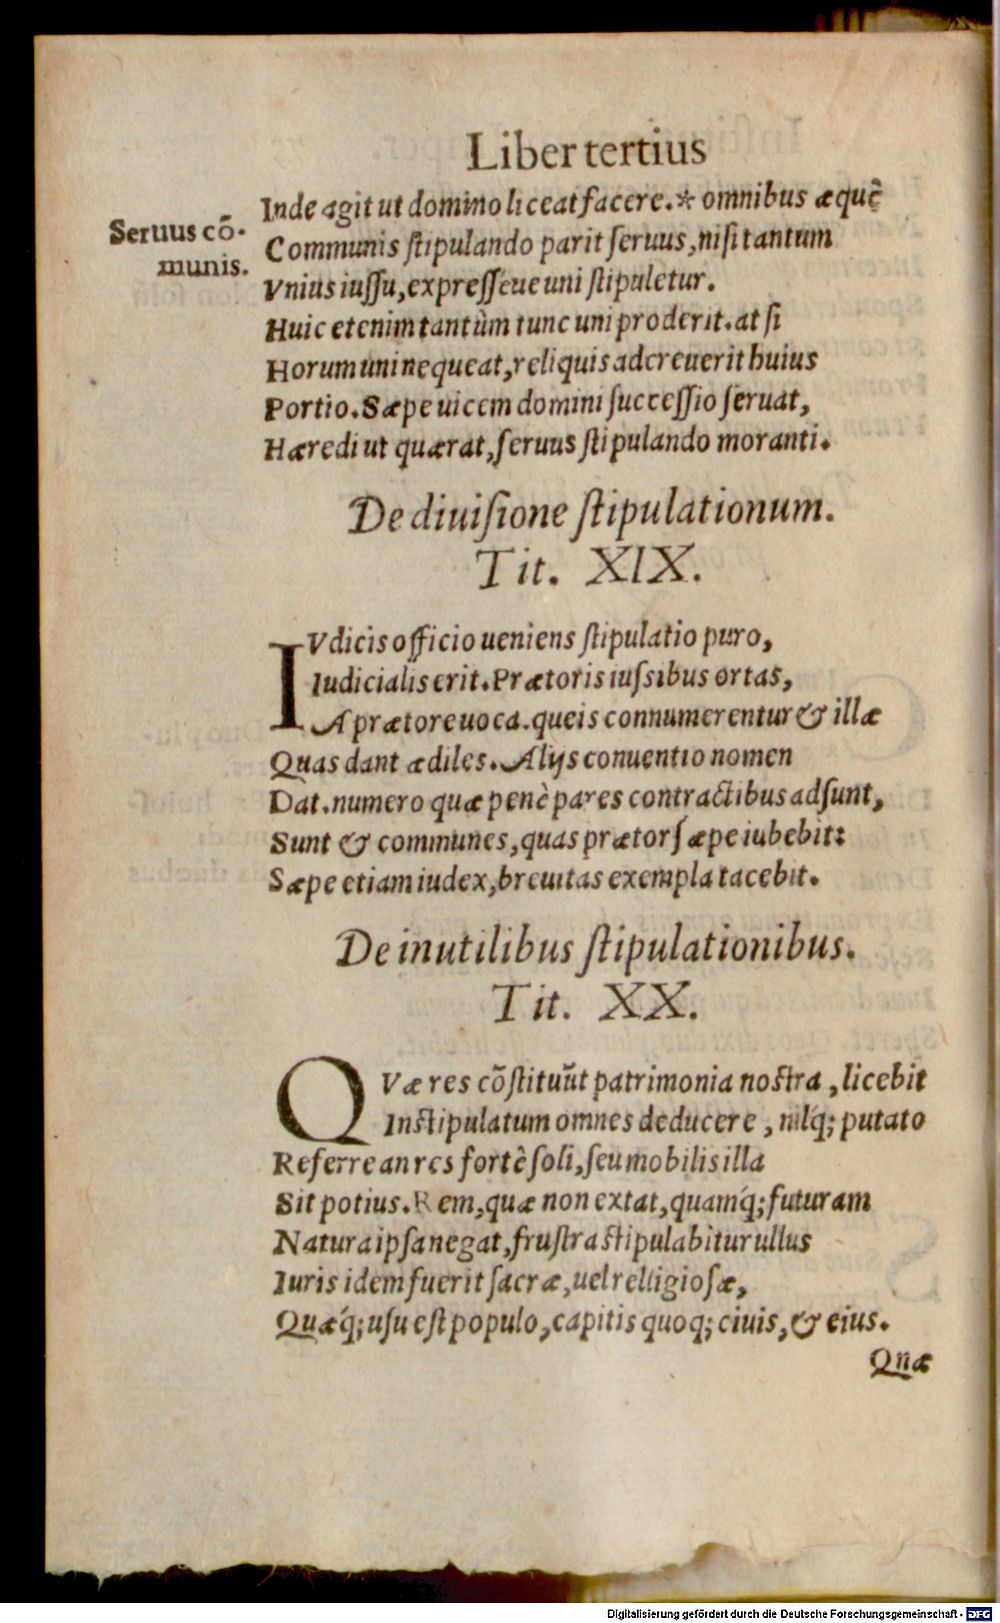 Liber tertius
Inde agit ut domino liceat facere.* omnibus æquè
Seruus cō-
munis.
Communis ſtipulando parit ſeruus, niſi tantum
Vnius iuſſu, expreſſéue uni ſtipuletur.
Huic etenim tantùm tunc uni proderit. at ſi
Horum uni nequeat, reliquis adcreuerit huius
Portio. Sæpe uicem domini ſucceſſio ſeruat,
Hæredi ut quærat, ſeruus ſtipulando moranti.
De diuiſione ſtipulationum.
Tit. XIX.
IVdicis officio ueniens ſtipulatio puro,
Iudicialis erit. Prætoris iuſsibus ortas,
A prætore uoca. queis connumerentur & illæ
Quas dant ædiles. Alijs conuentio nomen
Dat. numero quæ penè pares contractibus adſunt,
Sunt & communes, quas prætor ſæpe iubebit:
Sæpe etiam iudex, breuitas exempla tacebit.
De inutilibus ſtipulationibus.
Tit. XX.
QVæ res cōſtituūt patrimonia noſtra, licebit
In ſtipulatum omnes deducere, nilq́; putato
Referre an res fortè ſoli, ſeu mobilis illa
Sit potius. Rem, quæ non extat, quamq́; futuram
Natura ipſa negat, fruſtra ſtipulabitur ullus
Iuris idem fuerit ſacræ, uel relligioſæ,
Quæq́; uſu eſt populo, capitis quoq; ciuis, & eius.
Quæ
Digitalisierung gefördert durch die Deutsche Forschungsgemeinschaft - DFG